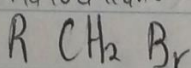 R CH₂ Br